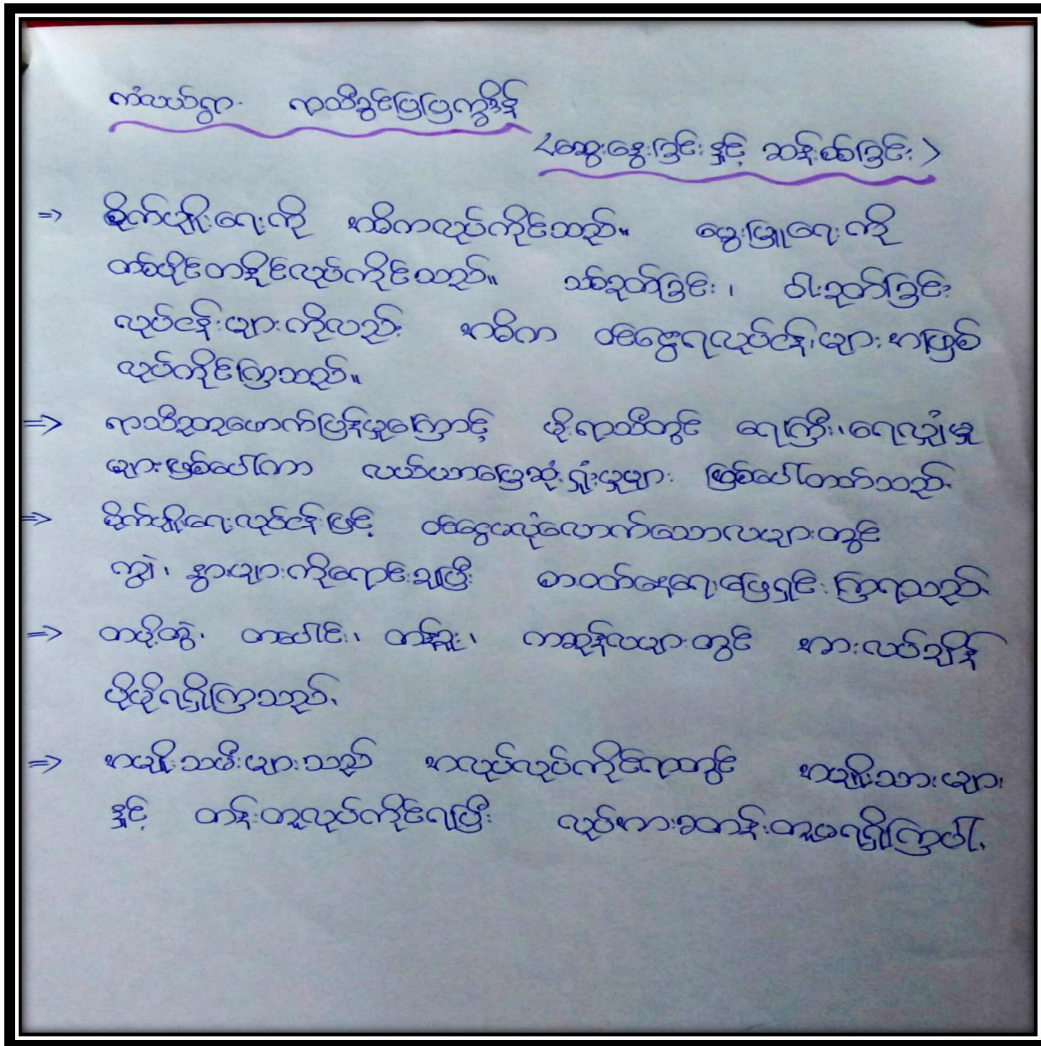 ကံလယ်ရွာ ရာသီခွင်ပြပြက္ခဒိန်
<ဆွေးနွေးခြင်းနှင့် ဆန်းစစ်ခြင်း>
⇒ စိုက်ပျိုးရေးကို အဓိကလုပ်ကိုင်သည်။ မွေးမြူရေးကို
တစ်ပိုင်တနိုင်လုပ်ကိုင်သည်။ သစ်ခုတ်ခြင်း၊ ဝါးခုတ်ခြင်း
လုပ်ငန်းများကိုလည်း အဓိက ဝင်ငွေရလုပ်ငန်းများအဖြစ်
လုပ်ကိုင်ကြသည်။
⇒ ရာသီဥတုဖောက်ပြန်မှုကြောင့် မိုးရာသီတွင် ရေကြီး၊ရေလျှံမှု
များဖြစ်ပေါ်ကာ လယ်ယာမြေဆုံးရှုံးမှုများ ဖြစ်ပေါ်တတ်သည်.
⇒ စိုက်ပျိုးရေးလုပ်ငန်းဖြင့် ဝင်ငွေမလုံလောက်သောလများတွင်
ကျွဲ၊ နွားများကိုရောင်းချပြီး စားဝတ်နေရေးဖြေရှင်းကြရသည်.
⇒ တပို့တွဲ၊ တပေါင်း၊ တန်ခူး၊ ကဆုန်လများတွင် အားလပ်ချိန်
ပိုမိုရရှိကြသည်.
⇒ အမျိုးသမီးများသည် အလုပ်လုပ်ကိုင်ရာတွင် အမျိုးသားများ
နှင့် တန်းတူလုပ်ကိုင်ရပြီး လုပ်အားခတန်းတူမရရှိကြပါ.